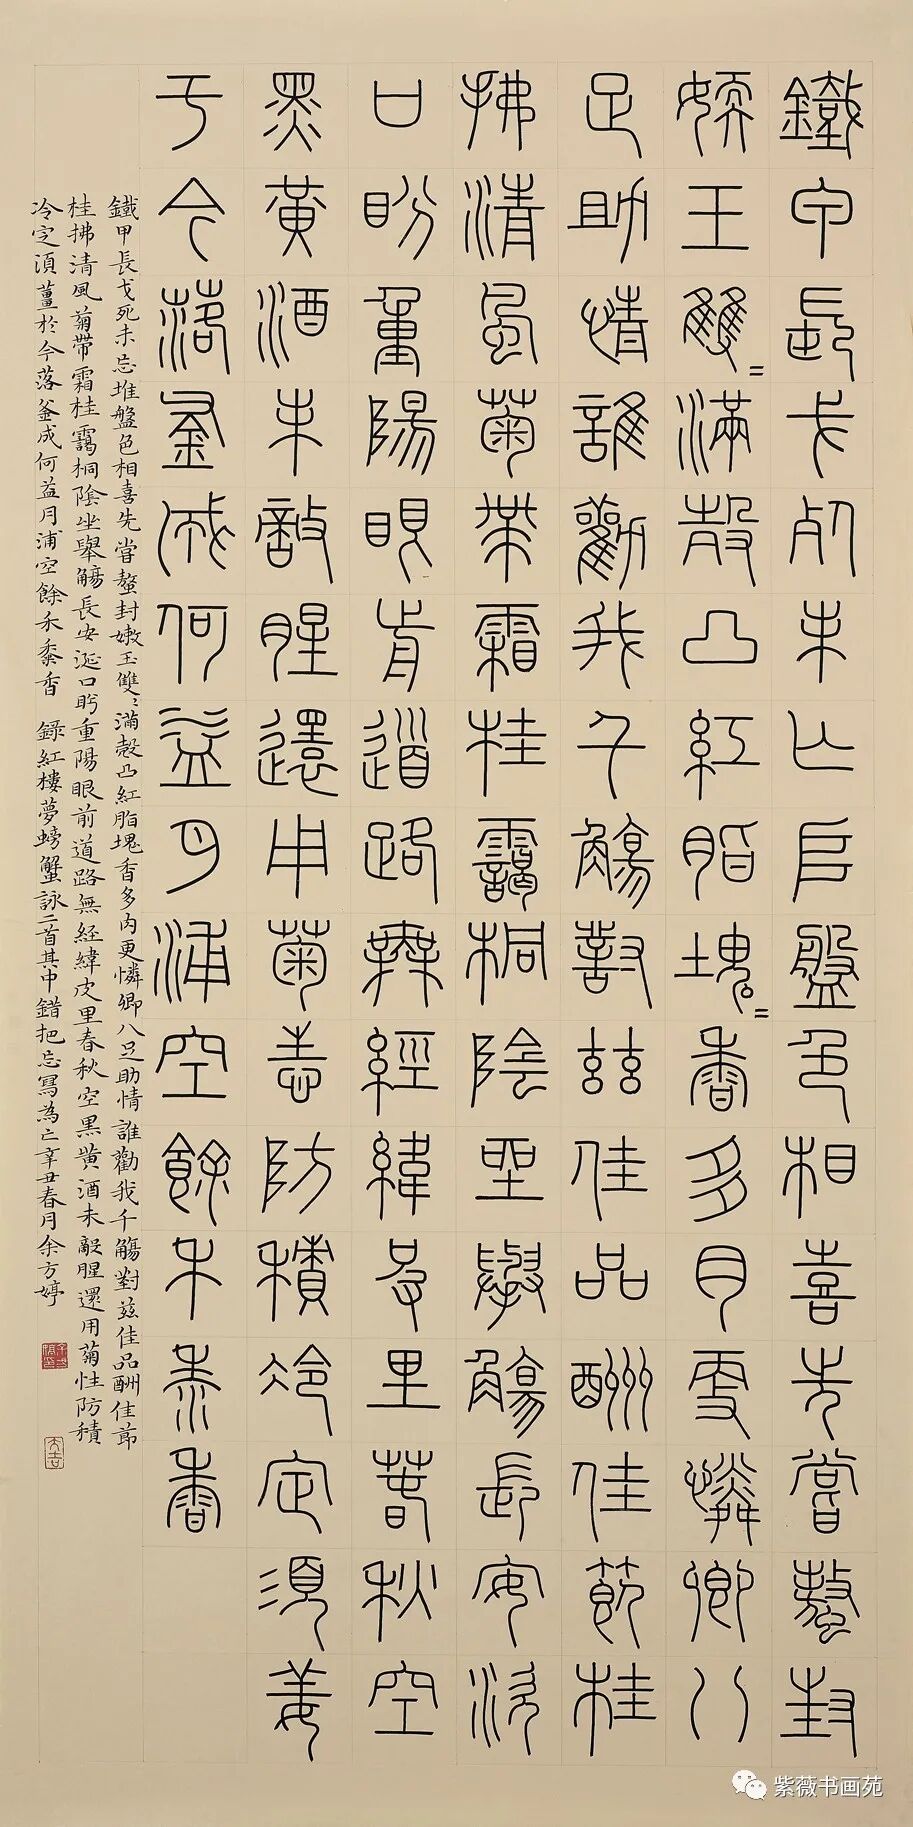 鐵甲長戈死未亡堆盤色相喜先嘗螯封
嫩玉雙〻滿殼凸紅脂塊〻香多肉更憐卿八
足助情誰勸我千觴對茲佳品酬佳節桂
拂清風菊帶霜桂靄桐陰坐舉觴長安涎
口盼重陽眼前道路無經緯皮里春秋空
黑黃酒未敵腥還用菊性防積冷定須姜
于今落釜成何益月浦空餘禾黍香
鐵甲長戈死未忘堆盤色相喜先嘗螯封嫩玉雙〻滿殼凸紅脂塊香多肉更憐卿八足助情誰勸我千觴對茲佳品酬佳節
桂拂清風菊帶霜桂靄桐陰坐舉觴長安涎口盼重陽眼前道路無經緯皮里春秋空黑黃酒未敵腥還用菊性防積
冷定須薑於今落釜成何益月浦空餘禾黍香 錄紅樓夢螃蟹詠二首其中錯把忘寫為亡辛丑春月余方婷
紫薇书画苑